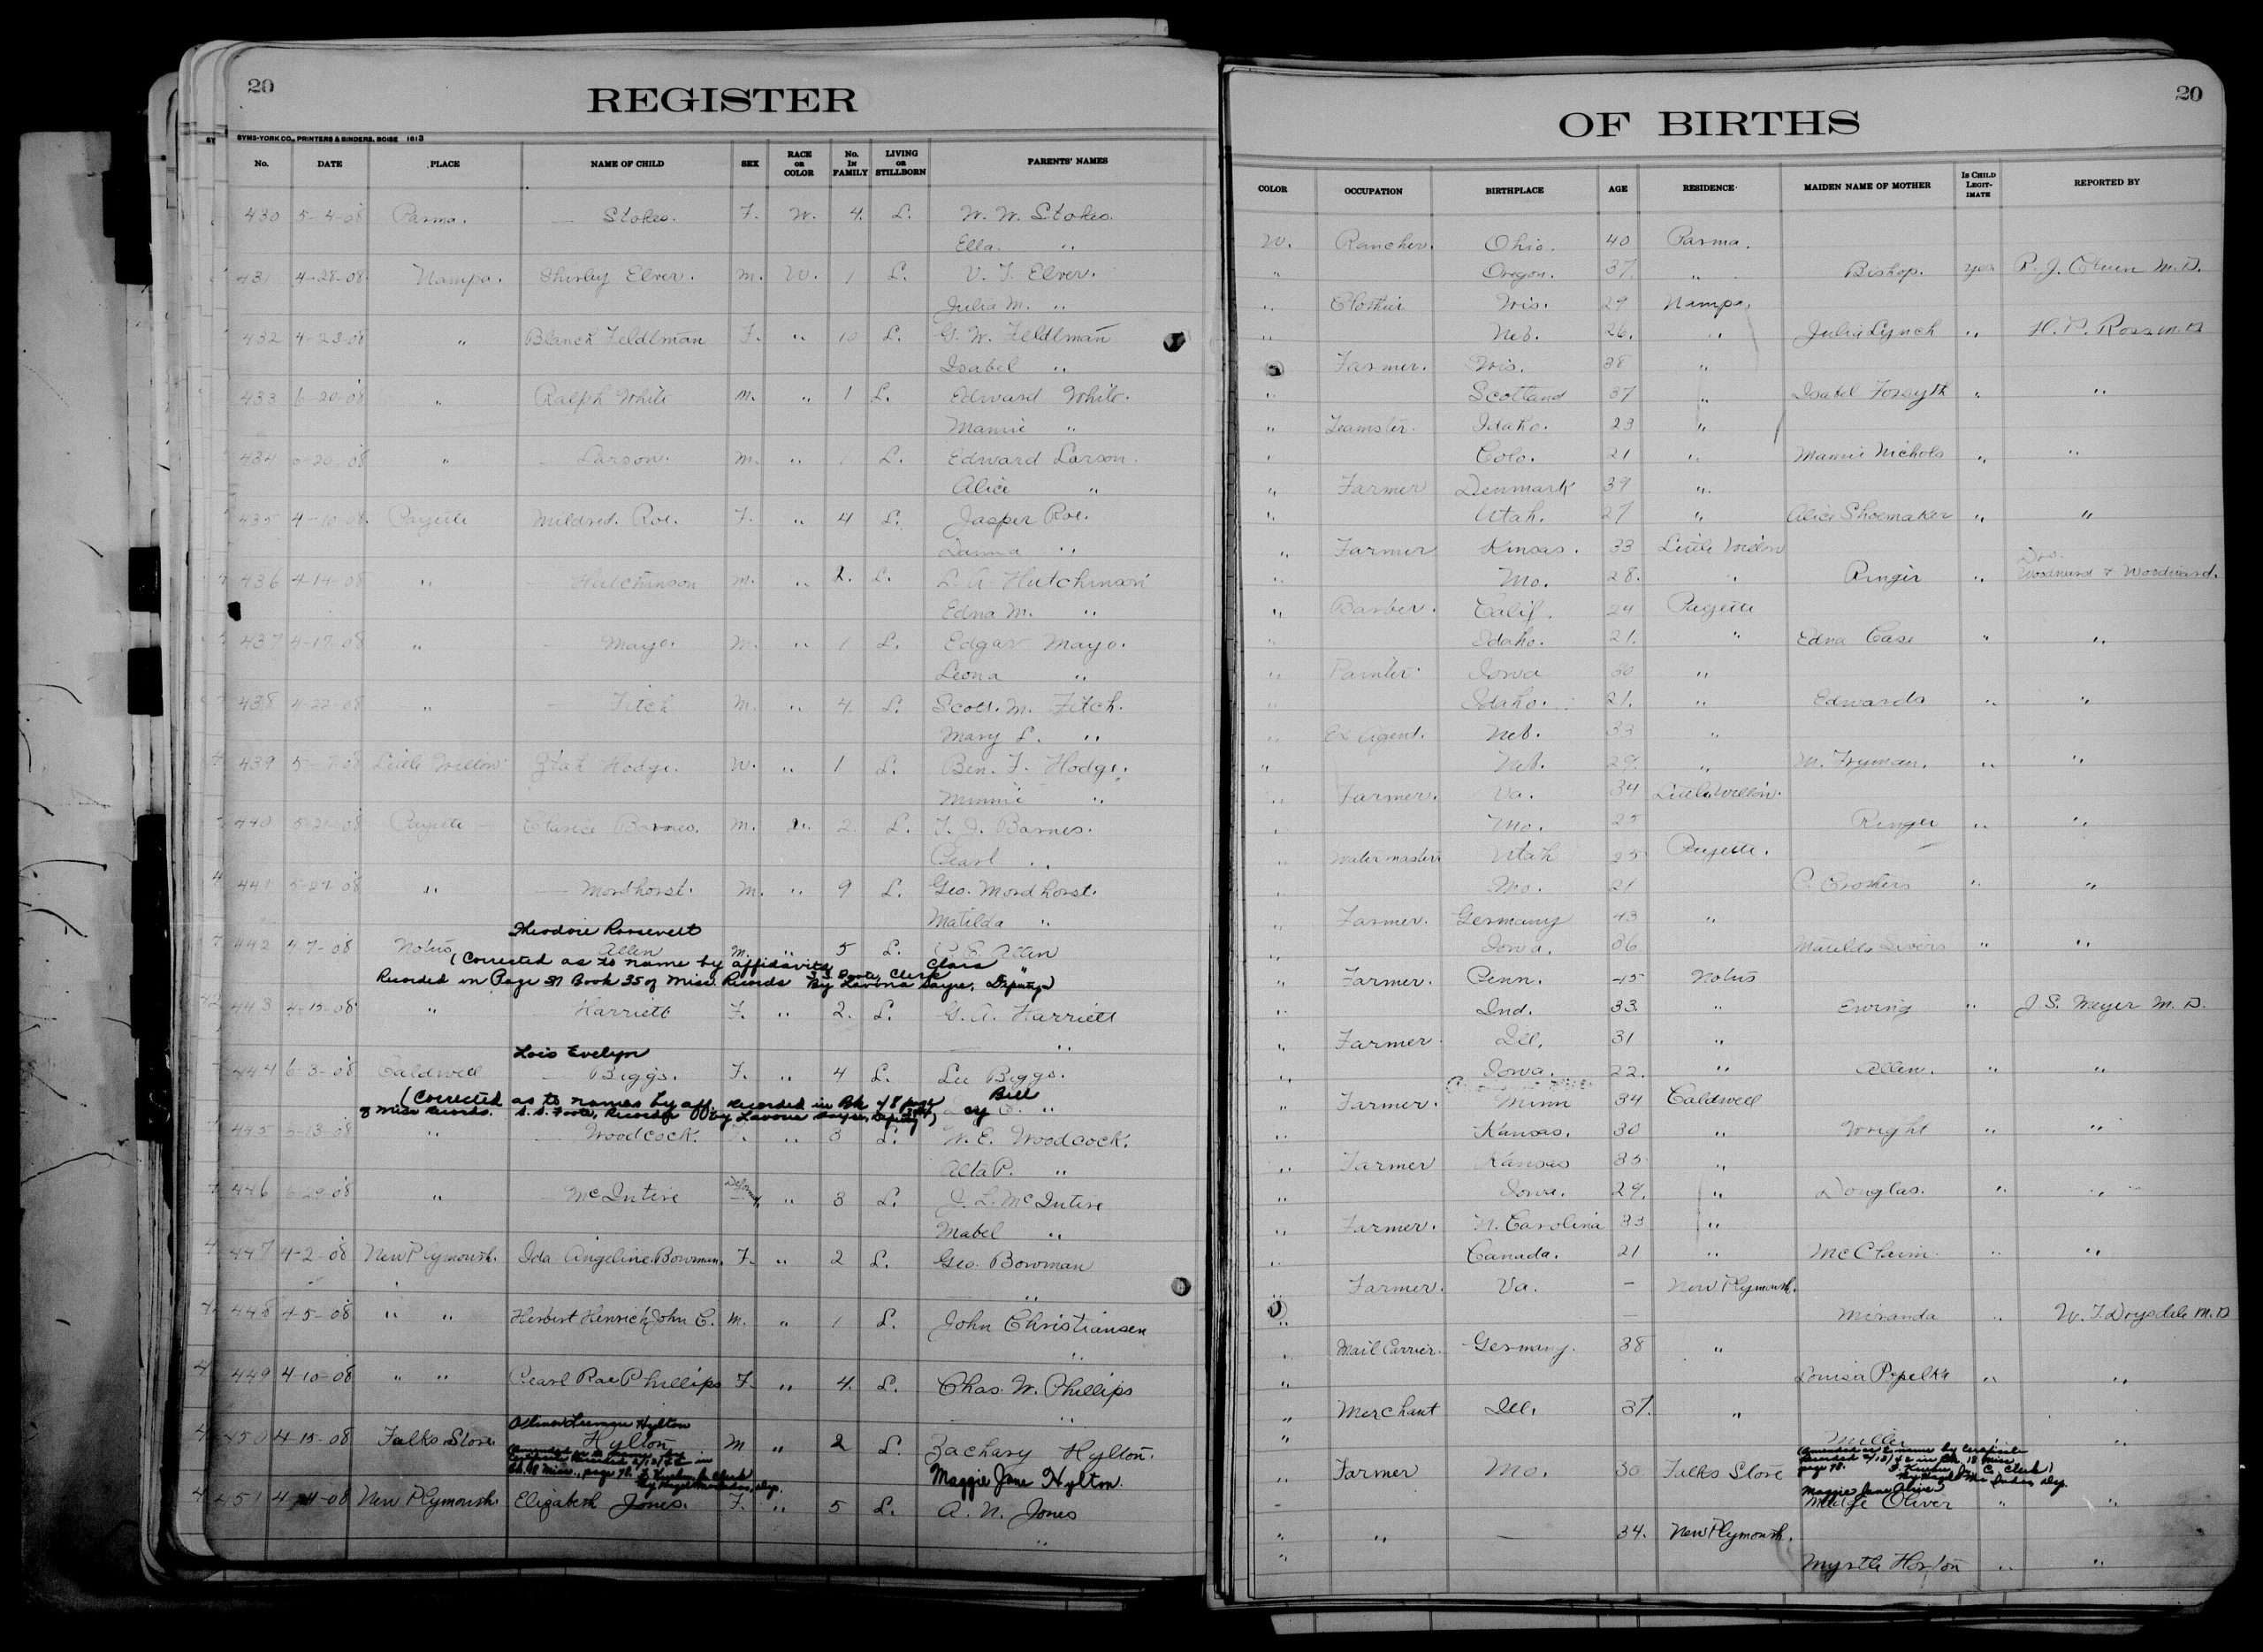 20
REGISTER
SYMS-YORK CO., PRINTERS & BINDERS, BOISE 1613
No. DATE PLACE NAME OF CHILD SEX RACE OR COLOR No. IN FAMILY LIVING OR STILLBORN PARENTS' NAMES
430 5-4-08 Parma. — Stokes. F. W. 4. L. W. W. Stokes.
Ella. "
431 4-28-08. Nampa. Shirley Elver. M. W. 1 L. V. F. Elver.
Julia M. "
432 4-23-08 " Blanch Feldtman F. " 10 L. G. W. Feldtman
Isabel "
433 6-20-08 " Ralph White M. " 1 L. Edward White.
Mamie "
434 6-20-08 " — Larson. M. " 1 L. Edward Larson.
Alice "
435 4-10-08. Payette Mildred. Roe. F. " 4 L. Jasper Roe.
"
436 4-14-08 " — Hutchinson M. " 2. L. L. A. Hutchinson
Edna M. "
437 4-17-08 " — Mayo. M. " 1 L. Edgar Mayo.
Leona "
438 4-22-08 " — Fitch M. " 4. L. Scott. M. Fitch.
Mary L. "
439 5-7-08 Little Willow Hodge. " 1 L. Ben. F. Hodge.
Minnie "
440 5-21-08 Payette Barnes. M. 2. L. Barnes.
Pearl "
441 5-27-08 " — Mordhorst. M. " 9 L. Geo. Mordhorst.
Matilda "
Theodore Roosevelt
442 4-7-08 Notus Allen M. " 5 L. Allen
(Corrected as to name by affidavits Clara "
Recorded in Page 37 Book 35 of Misc. Records Clerk By Lavona Sayre, Deputy)
443 4-15-08 " — Harriett F. " 2. L. G. A. Harriett
— "
Lois Evelyn
444 6-3-08 Caldwell — Biggs. F. " 4 L. Lee Biggs.
(Corrected as to names by aff. recorded in Bk 48 page Bell
of Misc Records. S. S. Foote, Recorder By Lavona Sayre, Deputy)
445 5-13-08 " — Woodcock. F. " 3 L. W. E. Woodcock.
Alta P. "
446 6-29-08 " — McIntire " 3 L. J. L. McIntire
Mabel "
447 4-2-08 New Plymouth. Ida Angeline Bowman. F. " 2 L. Geo. Bowman
— "
448 4-5-08 " " Herbert Henrich John C. M. " 1 L. John Christiansen
"
449 4-10-08 " " Pearl Rae Phillips F. " 4. L. Chas. W. Phillips
— "
Hylton
450 4-15-08 Falks Store Hylton M " 2 L. Zachary Hylton.
(Amended as to name by Certificate Recorded 2/13/42 in Bk. 18 Misc., page 98. Maggie Jane Hylton.
451 4-4-08 New Plymouth. Elizabeth Jones. F. " 5 L. A. N. Jones
"
20
OF BIRTHS
COLOR OCCUPATION BIRTHPLACE AGE RESIDENCE MAIDEN NAME OF MOTHER IS CHILD LEGITIMATE REPORTED BY
W. Rancher. Ohio. 40 Parma.
" Oregon. 37 " Bishop. yes M.D.
" Clothier Wis. 29 Nampa.
" Neb. 26. " Julia Lynch " H. P. Ross M.D
Farmer. Wis. 38 "
" Scotland 37 " Isabel Forsyth " "
" Teamster. Idaho. 23 "
" Colo. 21 " Mamie Nichols " "
" Farmer Denmark 39 "
" Utah. 27 " Alice Shoemaker " "
" Farmer Kansas. 33 Little Willow
" Mo. 28. " Ringer " Drs. Woodward & Woodward.
" Barber. Calif. 24 Payette
" Idaho. 21. " Edna Case " "
" Painter. Iowa 30 "
" Idaho. 21. " Edwards " "
" Ex Agent. Neb. 33 "
" Neb. 29. " M. Fryman. " "
" Farmer. Va. 34 Little Willow.
" Mo. 25 Ringer " "
" Water master Utah 25 Payette.
" Mo. 21 " "
" Farmer. Germany 43 "
" Iowa. 36 Matilda " "
" Farmer. Penn. 45 Notus
" Ind. 33. " Ewing " J. S. Meyer M. D.
" Farmer. Ill. 31 "
" Iowa. 22. " Allen. " "
" Farmer. Minn 34 Caldwell
" Kansas. 30 " Wright " "
" Farmer Kansas 35 "
" Iowa. 29. " Douglas. " "
" Farmer. N. Carolina 33 "
" Canada. 21 " McClaim. " "
" Farmer. Va. — New Plymouth.
" — Miranda " W. F. Drysdale M.D
" Mail Carrier. Germany. 38 "
" Louisa Popelka " "
" Merchant Ill. 37. "
" Miller " "
(Amended as to name by Certificate Recorded 2/13/42 in Bk. 18 Misc page 98.
" Farmer Mo. 30 Falks Store
Maggie Jane Oliver
Madge Oliver " "
" " — 34. New Plymouth.
" Myrtle Horton " "